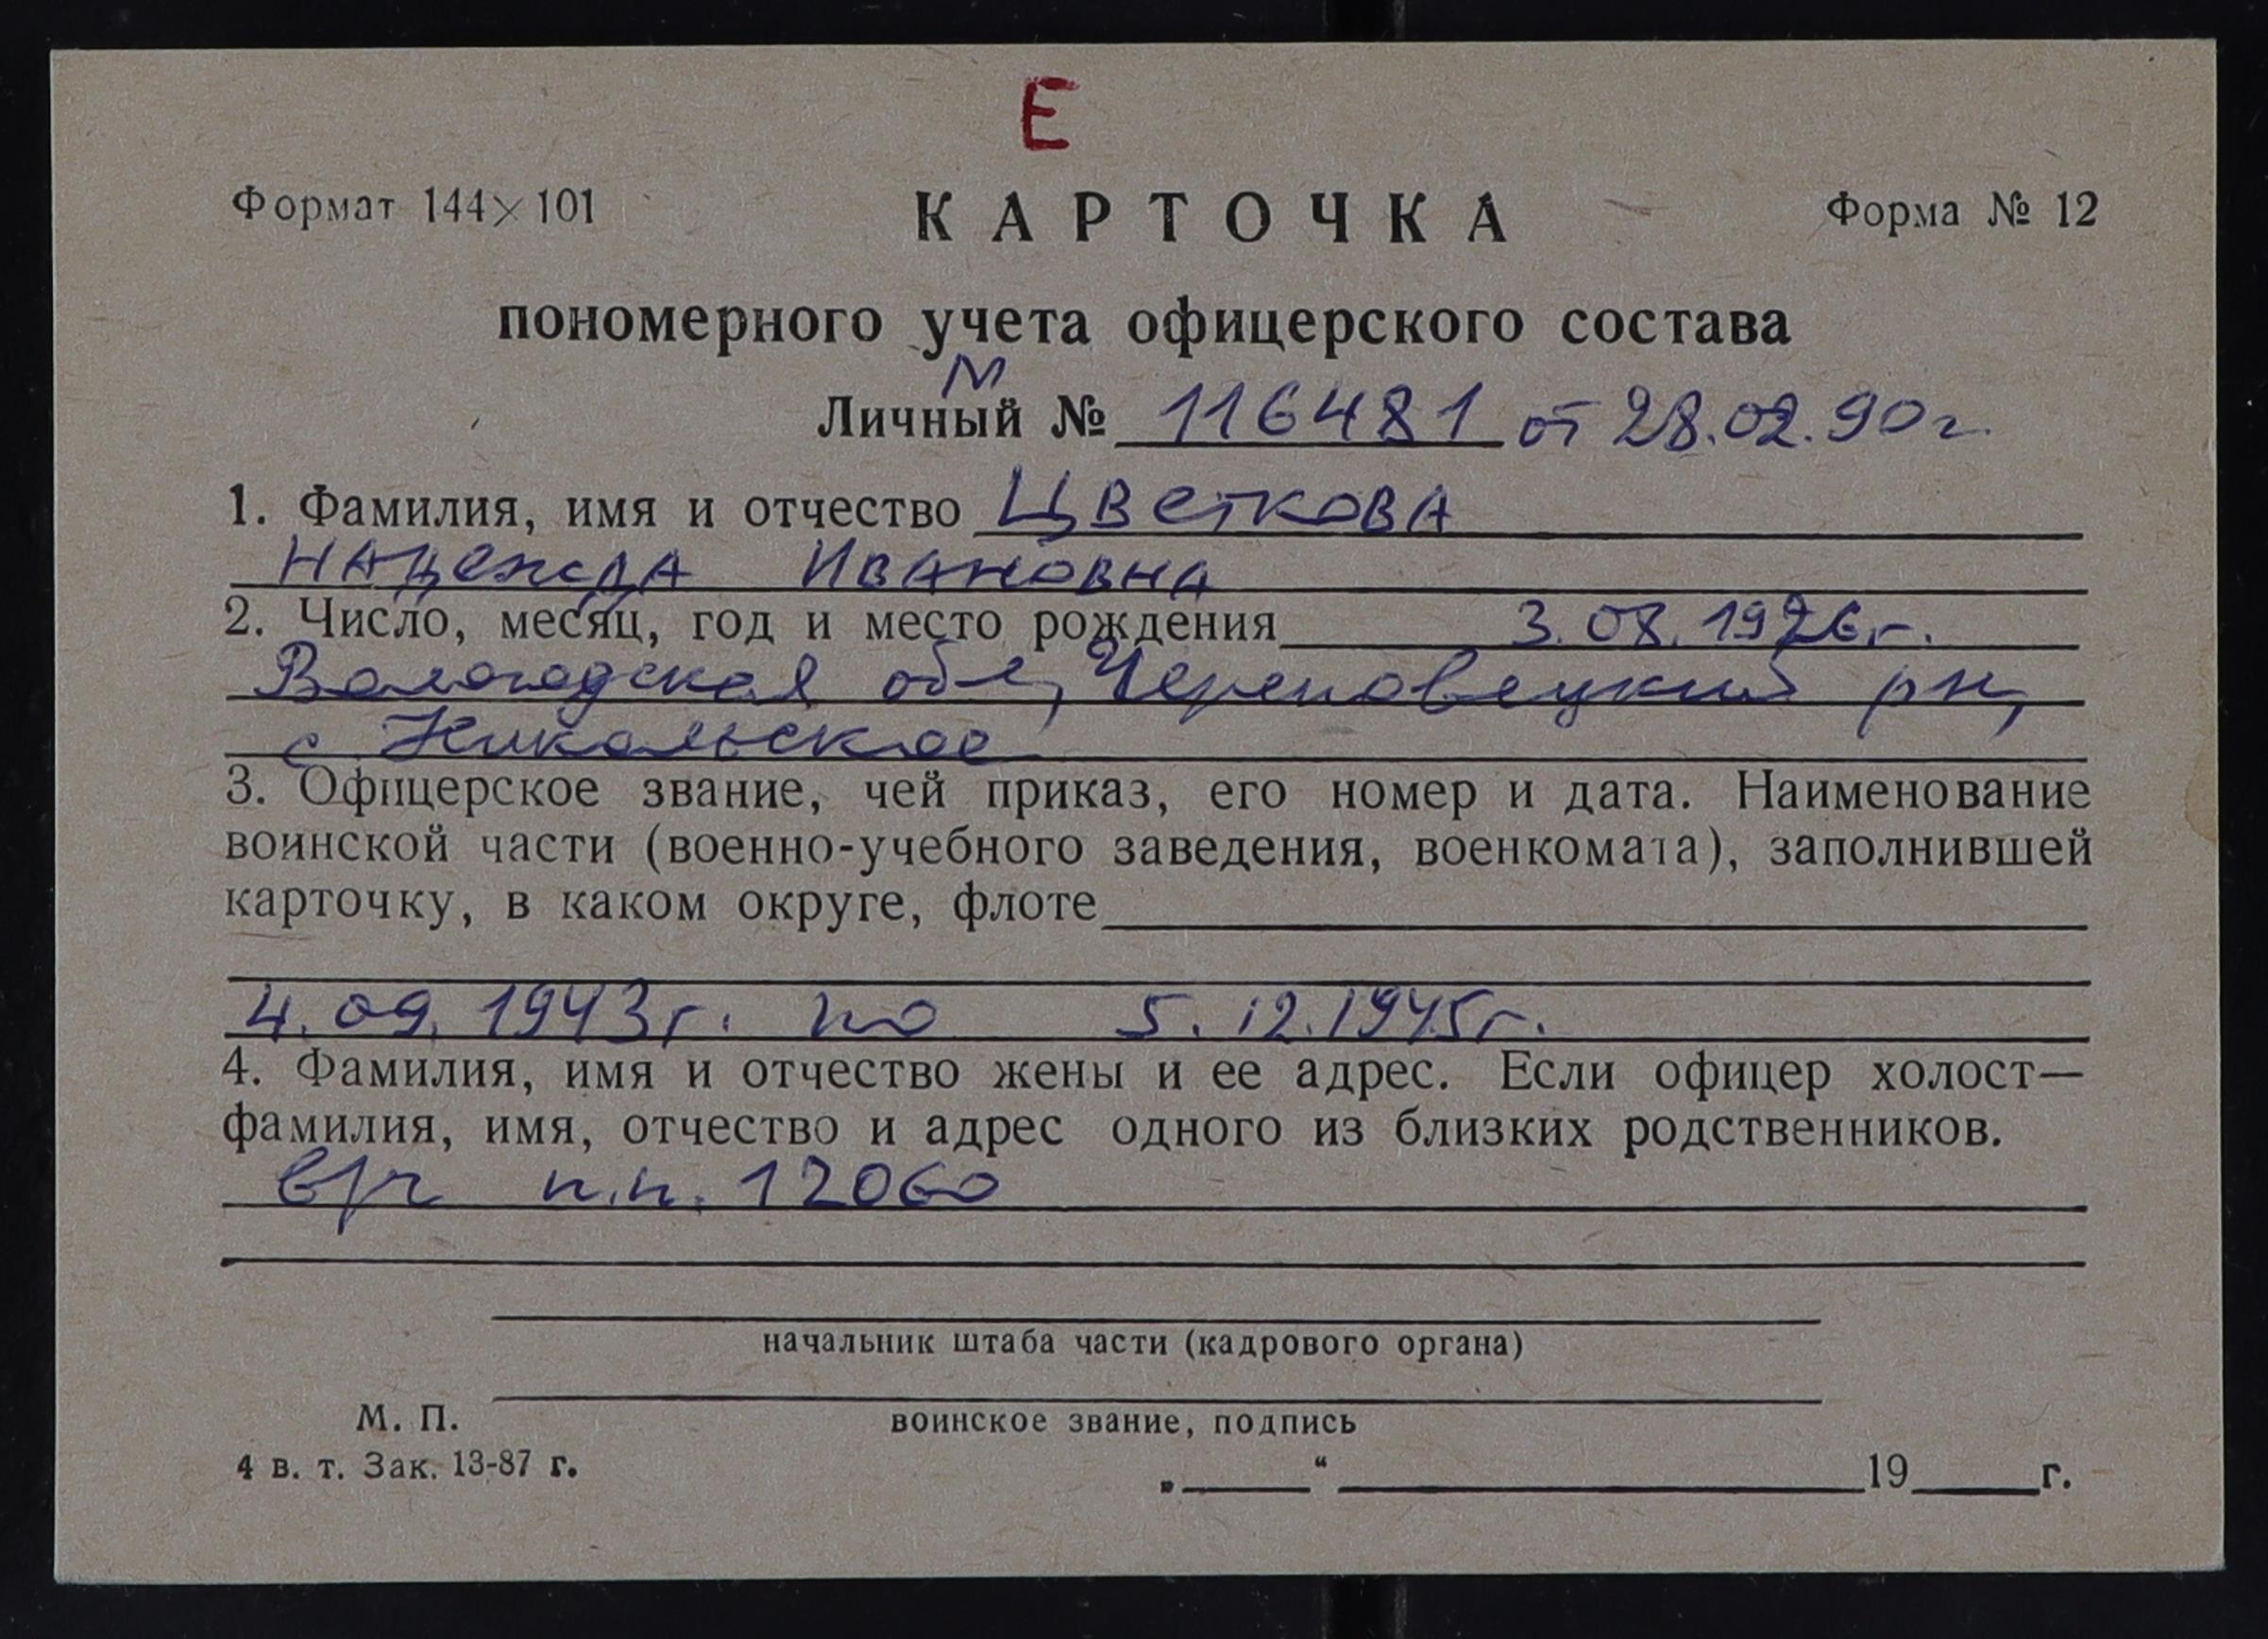 Е
Формат 144×101 КАРТОЧКА Форма № 12
пономерного учета офицерского состава
М
Личный № 116481 от 28.02.90г.
1. Фамилия, имя и отчество Цветкова
Надежда Ивановна
2. Число, месяц, год и место рождения 3.08.1926г.
Вологодская обл, Череповецкий рн,
с Никольское
3. Офицерское звание, чей приказ, его номер и дата. Наименование
воинской части (военно-учебного заведения, военкомата), заполнившей
карточку, в каком округе, флоте
4.09.1943г. по 5.12.1945г.
4. Фамилия, имя и отчество жены и ее адрес. Если офицер холост—
фамилия, имя, отчество и адрес одного из близких родственников.
в/ч п.п. 12060
начальник штаба части (кадрового органа)
М. П.
воинское звание, подпись
4 в. т. Зак. 13-87 г.
„ “ 19 г.